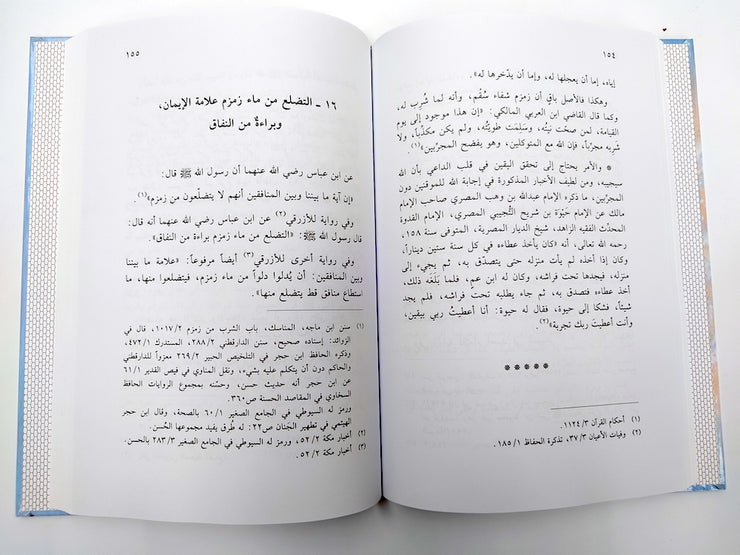 ١٥٤
إياه، إما أن يعجلها له، وإما أن يدّخرها له».
وهكذا فالأصل باقٍ أن زمزم شفاء سُقْم، وأنه لما شُرب له،
وكما قال القاضي ابن العربي المالكي: «إن هذا موجود إلى يوم
القيامة، لمن صحّت نيّته، وسَلِمَت طويّتُه، ولم يكن مكذّباً، ولا
شَرِبه مجرّباً، فإن الله مع المتوكلين، وهو يفضح المجرّبين»(١).
* والأمر يحتاج إلى تحقق اليقين في قلب الداعي بأن الله
سيجيبه، ومن لطيف الأخبار المذكورة في إجابة الله للموقنين دون
المجرّبين، ما ذكره الإمام عبد الله بن وهب المصري صاحب الإمام
مالك عن الإمام حَيْوَة بن شريح التُّجيبي المصري، الإمام القدوة
المحدّث الفقيه الزاهد، شيخ الديار المصرية، المتوفى سنة ١٥٨
رحمه الله تعالى، أنه «كان يأخذ عطاءه في كل سنة ستين ديناراً،
وكان إذا أخذه لم يأت منزله حتى يتصدّق به، ثم يجيء إلى
منزله، فيجدها تحت فراشه، وكان له ابن عم، فلما بَلَغَه ذلك،
أخذ عطاءه فتصدق به، ثم جاء يطلبه تحت فراشه، فلم يجد
شيئاً، فشكا إلى حيوة، فقال له حيوة: أنا أعطيتُ ربي بيقين،
وأنت أعطيت ربك تجربة»(٢).
* * * * *
(١) أحكام القرآن ٣/ ١١٢٤.
(٢) وفيات الأعيان ٣/ ٣٧، تذكرة الحفاظ ١/ ١٨٥.
١٥٥
١٦ - التضلع من ماء زمزم علامة الإيمان،
وبراءةٌ من النفاق
عن ابن عباس رضي الله عنهما أن رسول الله ﷺ قال:
«إن آية ما بيننا وبين المنافقين أنهم لا يتضلّعون من زمزم»(١).
وفي رواية للأزرقي(٢) عن ابن عباس رضي الله عنهما أنه قال:
قال رسول الله ﷺ: «التضلع من ماء زمزم براءة من النفاق».
وفي رواية أخرى للأزرقي(٣) أيضاً مرفوعاً: «علامة ما بيننا
وبين المنافقين: أن يُدلوا دلواً من ماء زمزم، فيتضلعوا منها، ما
استطاع منافق قط يتضلع منها».
(١) سنن ابن ماجه، المناسك، باب الشرب من زمزم ٢/ ١٠١٧، قال في
الزوائد: إسناده صحيح، سنن الدارقطني ٢/ ٢٨٨، المستدرك ١/ ٤٧٢،
وذكره الحافظ ابن حجر في التلخيص الحبير ٢/ ٢٦٩ معزواً للدارقطني
والحاكم دون أن يتكلم عليه بشيء، ونقل المناوي في فيض القدير ١/ ٦١
عن ابن حجر أنه حديث حسن، وحسّنه بمجموع الروايات الحافظ
السخاوي في المقاصد الحسنة ص٣٦٠.
ورمز له السيوطي في الجامع الصغير ١/ ٦٠ بالصحة، وقال ابن حجر
الهيتمي في تطهير الجَنان ص٢٢: له طُرق يفيد مجموعها الحُسن.
(٢) أخبار مكة ٢/ ٥٢، ورمز له السيوطي في الجامع الصغير ٣/ ٢٨٣ بالحسن.
(٣) أخبار مكة ٢/ ٥٢.